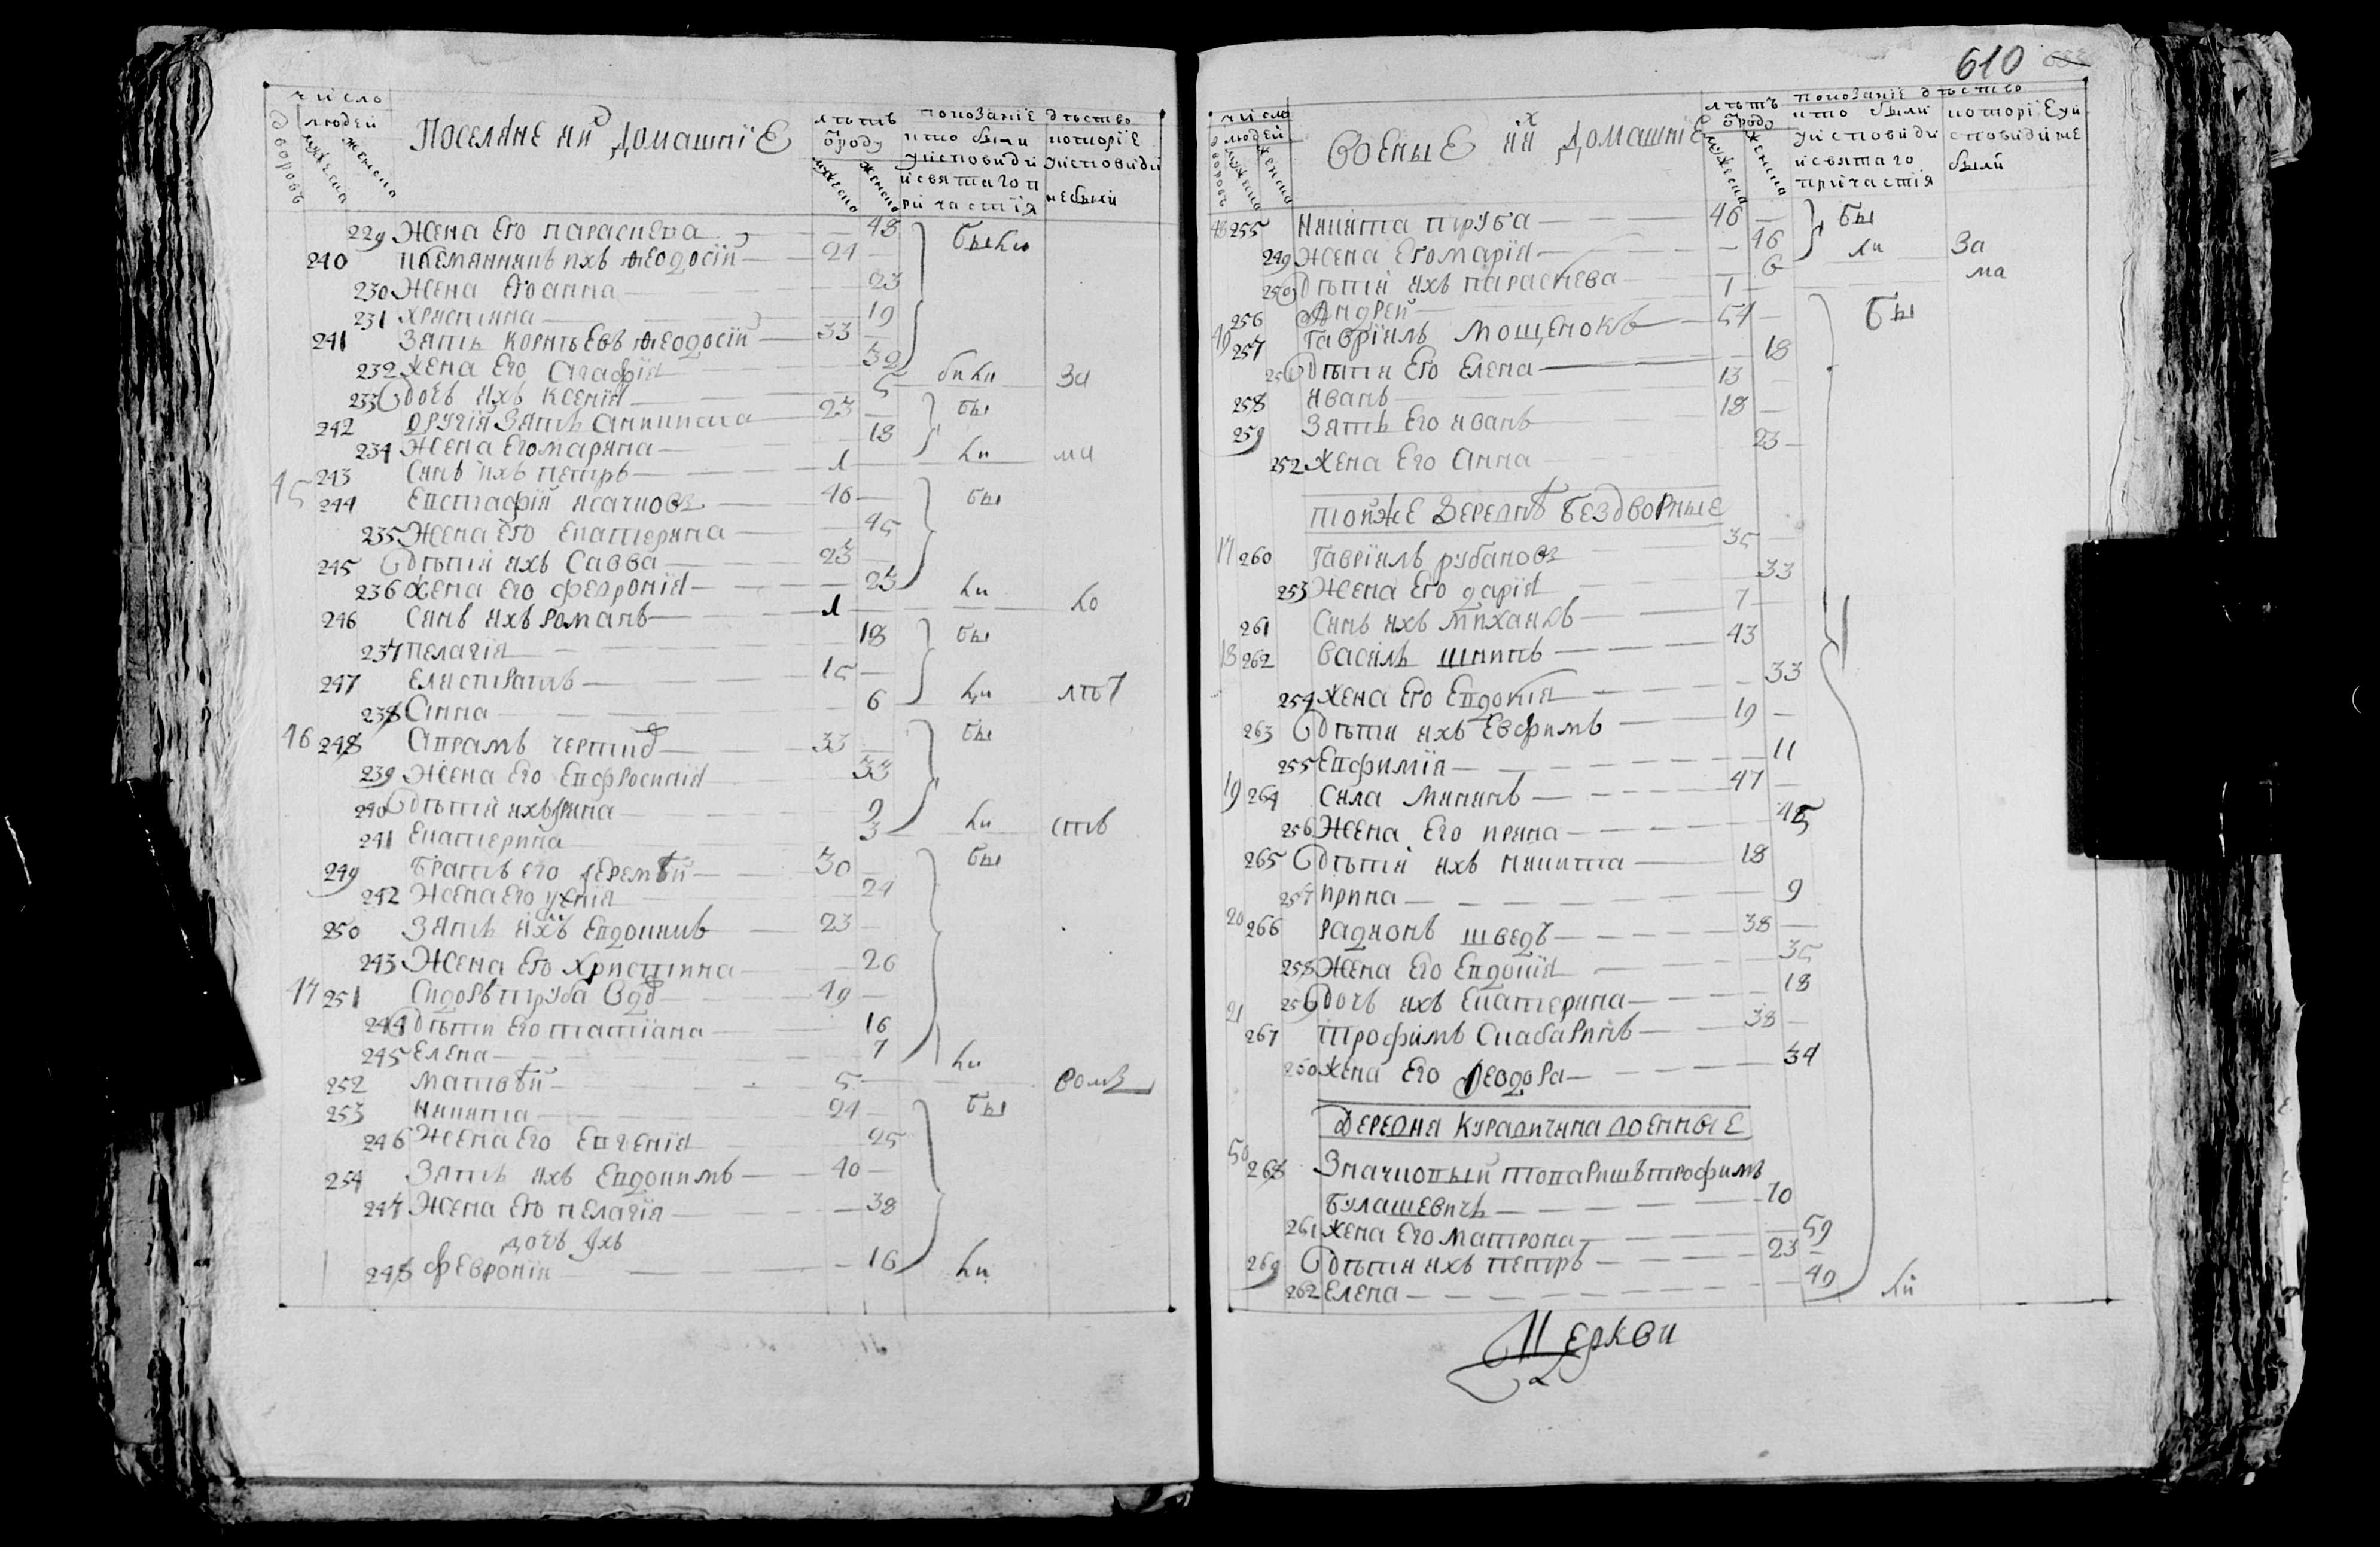 число
дворовъ
людей
мужеска
женска
Поселяне ий домашнїе
лѣтъ
ѿроду
мужеска
женска
показанїе дѣство
кто были
уисповиди
й святаго п
ри частїя
которїе
уисповиди
небыли
229 жена его параскева — 48 быки
240 племянникъ ихъ ѳеодосїй — 24
230 Жена его анна — 23
231 христина — 19
241 Зять корнѣевъ ѳеодосїй — 33
232 жена его Агафїя — 32
233 дочь ихъ ксенїя — 5 били за
242 другїй зять — 23 бы
234 жена его маряна — 18
243 Синъ ихъ петръ — 1 ли ма
45 244 Евстафїй исачковъ — 46 бы
235 Жена его екатерина — 45
245 дѣтїи ихъ Савва — 23
236 жена его февронїя — 23 ли
246 Синъ ихъ романъ — 1 ло
237 пелагїя — 18 бы
247 Елистратъ — 15
238 Анна — 6 ли лѣт
46 248 Аврамъ — 33 бы
239 Жена его Евфросинїя — 33
240 дѣтїи ихъ ирина — 9
241 Екатерина — 3 ли ств
249 Братъ его Іеремѣй — 30 бы
242 Жена его — 24
250 Зять ихъ Евдокимъ — 23
243 Жена его Христина — 26
47 251 Сидоръ труба вдо — 49
244 Дѣти его татїана — 16
245 Елена — 7 ли
252 матвѣй — 5 вомъ
253 никита — 24 бы
246 Жена его Евгенїя — 25
254 Зять ихъ Евдокимъ — 40
247 Жена его пелагїя — 38
дочь ихъ
248 февронїя — 16 ли
610
число
дворовъ
людей
мужеска
женска
Военые ий домашнїе
лѣтъ
ѿроду
мужеска
женска
показанїе дѣство
кто были
уисповиди
и святаго
причастїя
которїе уи
сповиди не
были
48 255 никита труба — 46 бы
249 жена его марїя — 46 ли за
250 дѣтїи ихъ параскева — 6 ма
256 Андрей — 1
49 257 Гаврїилъ мощенокъ — 54 бы
251 дѣтїи его елена — 18
258 иванъ — 13
259 Зять его иванъ — 18
252 жена его Анна — 23
тойже деревнѣ бездворные
17 260 Гаврїилъ рубановъ — 35
253 Жена его дарїя — 33
261 Синъ ихъ михаилъ — 7
18 262 василь шкитъ — 43
254 жена его Евдокїя — 33
263 дѣтїи ихъ Евфимъ — 19
255 Евфимїя — 11
19 264 Сила мининъ — 47
256 Жена его ирина — 45
265 дѣтїи ихъ никита — 18
257 ирина — 9
20 266 радионъ шведъ — 38
258 Жена его Евдокїя — 35
259 дочь ихъ Екатерина — 18
21 267 трофимъ — 38
260 жена его Ѳеодора — 34
Деревня курадичина военные
50 268 Значковый товаришъ трофимъ
булашевичъ — 70
261 жена его матрона — 59
269 дѣтїи ихъ петръ — 23
262 Елена — 40 ли
Церкви